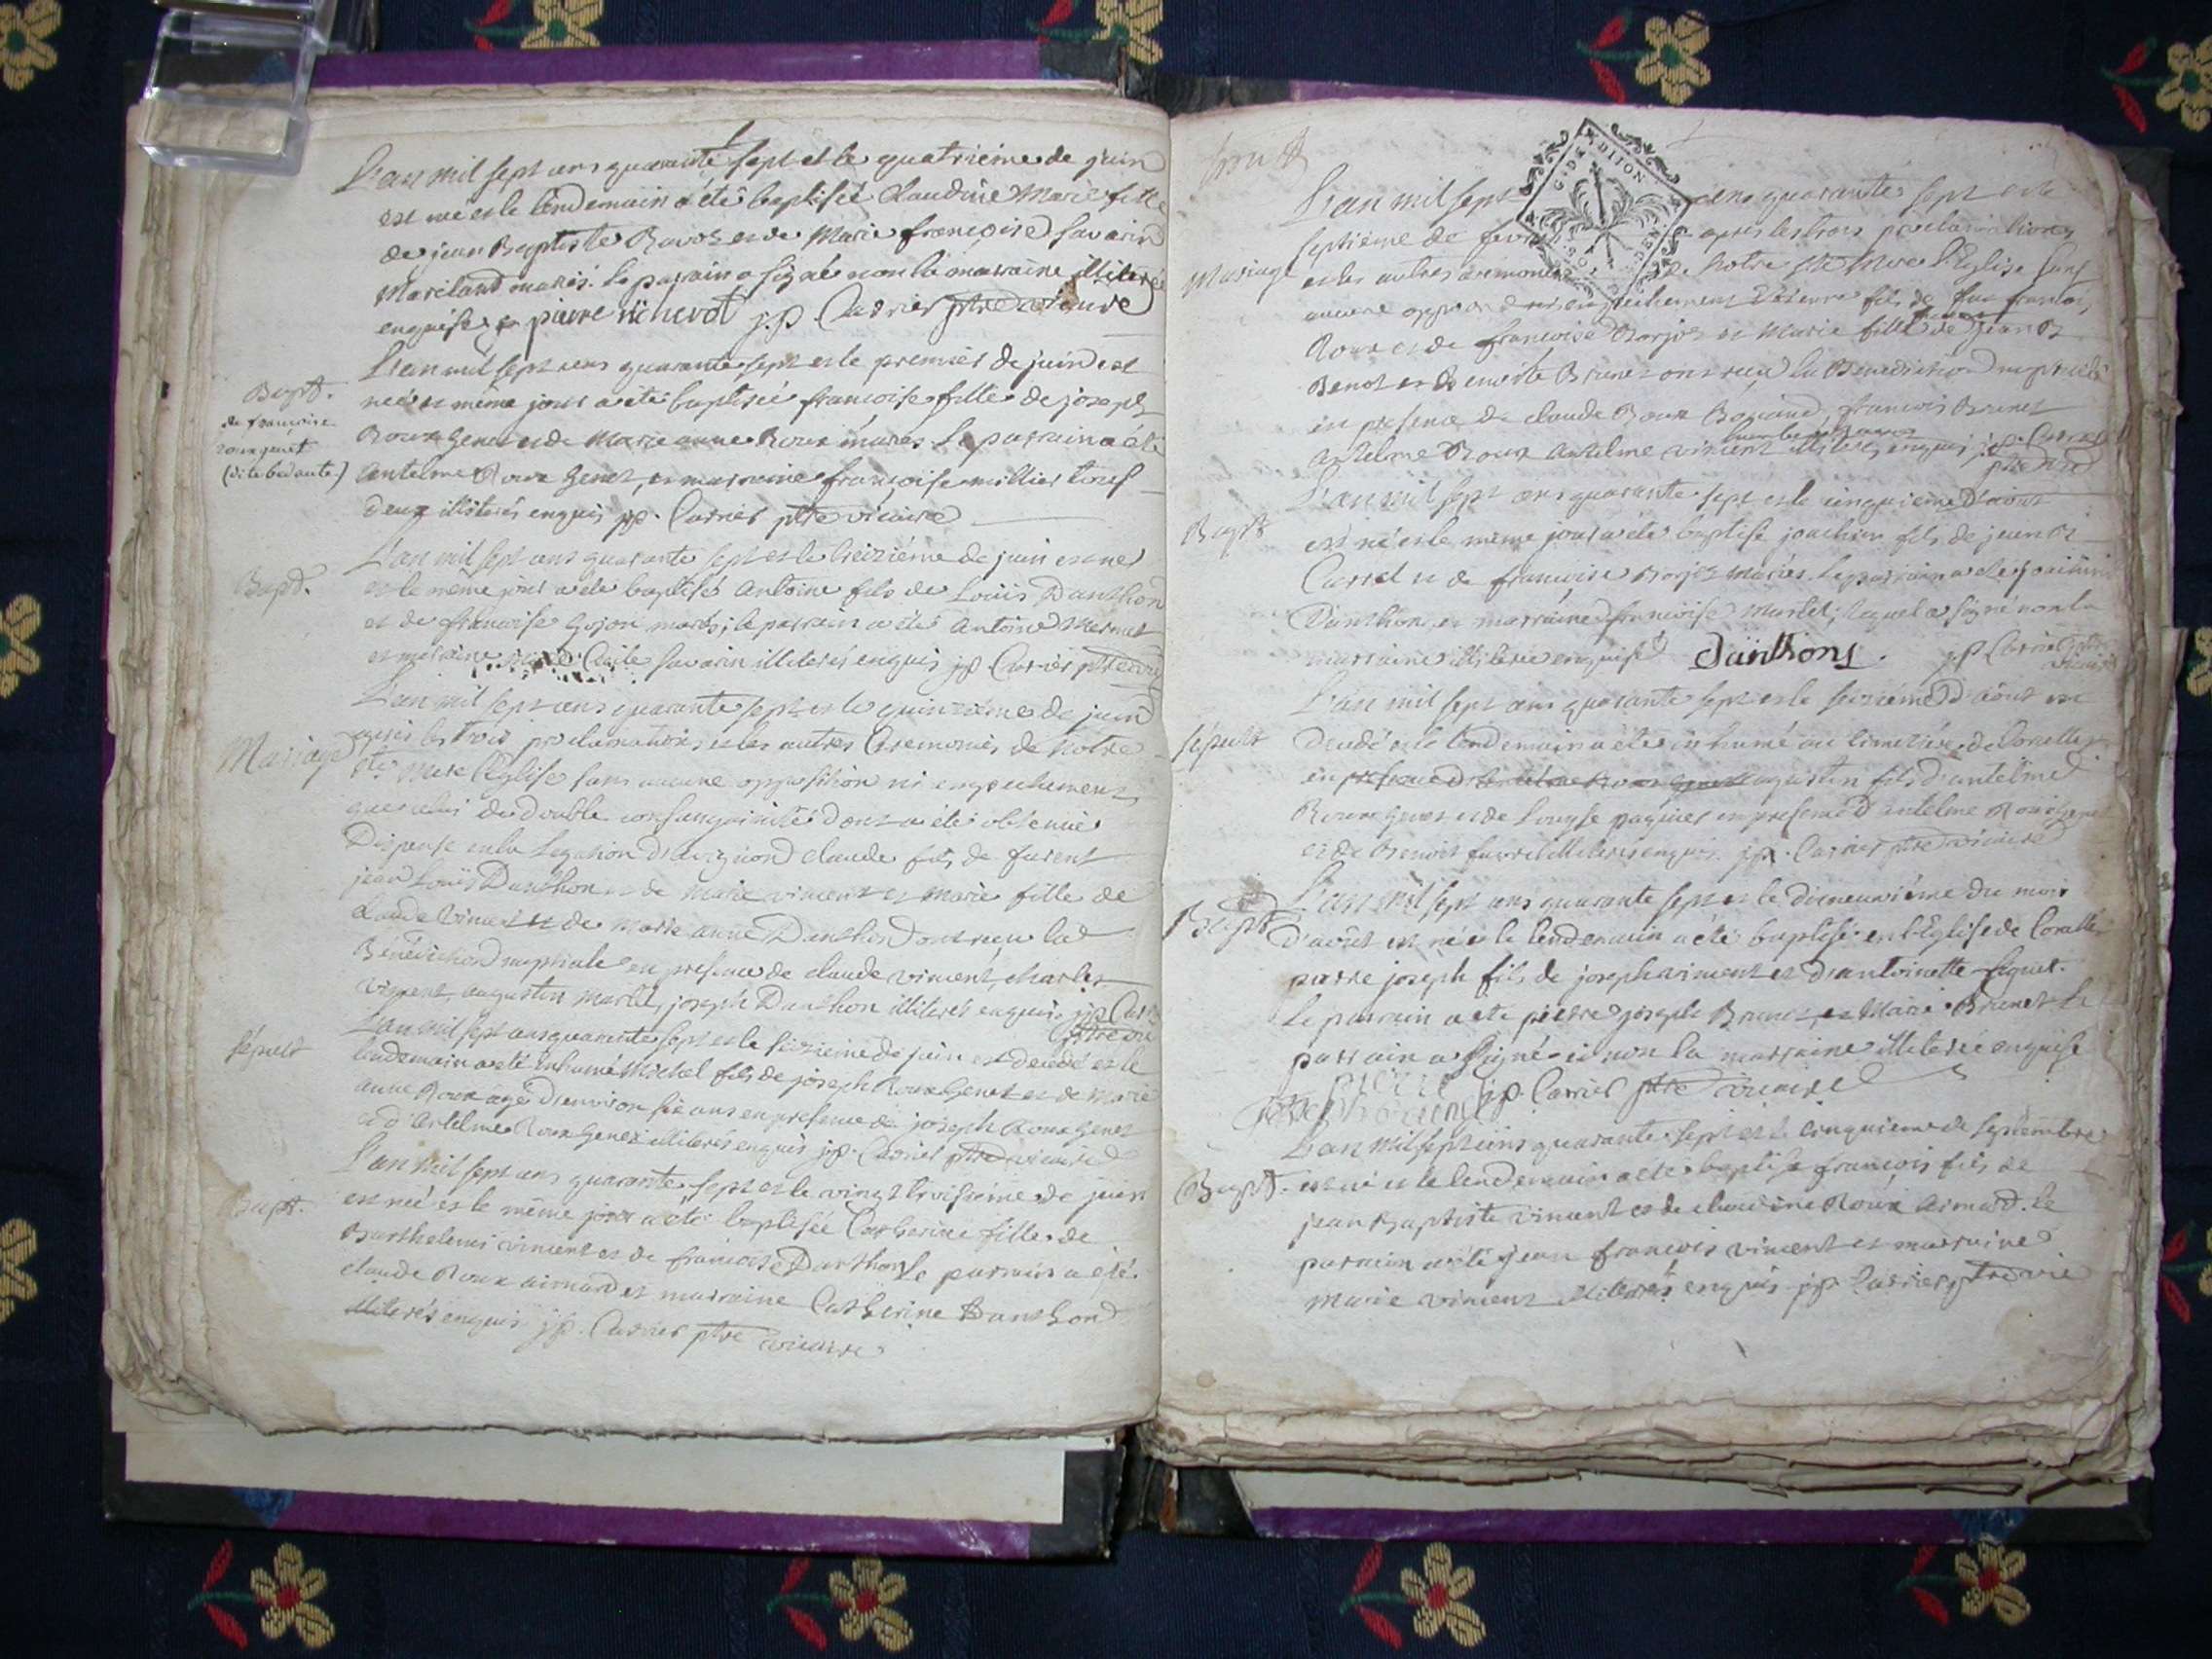 L'an mil sept cens quarante sept et le quatrieme de juin
est née et le lendemain a été baptisée Claudine Marie fille
de jean Baptiste Ravoz et de Marie françoise Savarin
mariés. le parrain a signé non la marraine illiterée
enquise pierre j:p Carrier ptre vicaire
Bapt.
de françoise
roux genet
(dite bedaute)
L'an mil sept cens quarante sept et le premier de juin est
née et même jour a été baptisée françoise fille de joseph
Roux Genet et de Marie anne Roux mariés. Le parrain a été
antelme Roux Genet, et marraine françoise millier tous
deux illiterés enquis j:p. Carrier ptre vicaire
Bapt.
L'an mil sept cens quarante sept et le treizième de juin est né
et le même jour a été baptisé Antoine fils de Loüis Danthon
et de françoise Gojon mariés; le parrain a été Antoine Mermet
et marraine Cecile Savarin illiterés enquis j:p Carrier ptre vic
Mariage
L'an mil sept cens quarante sept et le quinzième de juin
après les trois proclamations et les autres Ceremonies de Notre
Ste Mere l'Eglise sans aucune opposition ni empechement
que celui du double consanguinité dont a été obtenüe
Dispense en la Legation d'avignon claude fils de furent
jean Loüis Danthon et de marie vincent et marie fille de
Claude vincent et de Marie anne Danthon ont reçu la
Bénédiction nuptiale en presence de claude vincent, charles
vincent, augustin martel, joseph Danthon illiterés enquis j:p Carrier
ptre vic
sépult
L'an mil sept cens quarante sept et le seizieme de juin est decedé et le
lendemain a été inhumé Michel fils de joseph Roux Genet et de Marie
anne Roux agé d'environ six ans en presence de joseph Roux Genet
et d'Antelme Roux Genet illiterés enquis j:p. Carrier ptre vicaire
Bapt.
L'an mil sept cens quarante sept et le vingt troisième de juin
est née et le même jour a été baptisée Catherine fille de
Barthelemi vincent et de françoise Danthon le parrain a été
claude Roux aimard et marraine Catherine Danthon
illiterés enquis j:p. Carrier ptre vicaire
G. DE DIJON
Mariage
L'an mil sept cens quarante sept et le
septième de fevrier après les trois proclamations
et les autres ceremonies de Notre Ste Mere l'Eglise sans
aucune opposition ni empechement Etienne fils de feu françois
Roux et de françoise Borjoz et Marie fille de jean B
Benot et de Brunet ont reçu la Benediction nuptiale
en presence de claude Roux françois Brunet
Antelme Roux Antelme vincent illiterés enquis j:p. Carrier
ptre vic
Bapt
L'an mil sept cens quarante sept et le cinquieme d'aout
est né et le même jour a été baptisé joachim fils de jean B
Carrel et de françoise Borjoz mariés. le parrain a été joachim
Danthon et marraine françoise Martel; lequel a signé non la
marraine illiterée enquise Danthons. j:p Carrier ptre
vicaire
sépult
L'an mil sept cens quarante sept et le seizième d'aout est
decedé et le lendemain a été inhumé au cimetière de
en augustin fils d'antelme
Roux Genet et de Louyse en presence d'antelme Roux genet
et de Benoit favre illiterés enquis. j:p. Carrier ptre vicaire
Bapt
L'an mil sept cens quarante sept et le dixneuvième du mois
d'août est né et le lendemain a été baptisé en l'Eglise de
pierre joseph fils de joseph vincent et d'antoinette
Le parrain a été pierre joseph Brunet, et Marie Brunet Le
parrain a signé et non la marraine illiterée enquise
pierre
joseph brunet j:p. Carrier ptre vicaire
Bapt.
L'an mil sept cens quarante sept et le cinquieme de septembre
est né et le lendemain a été baptisé françois fils de
jean Baptiste vincent et de claudine Roux aimard. le
parrain a été jean françois vincent et marraine
marie vincent illiterés enquis j:p Carrier ptre vic